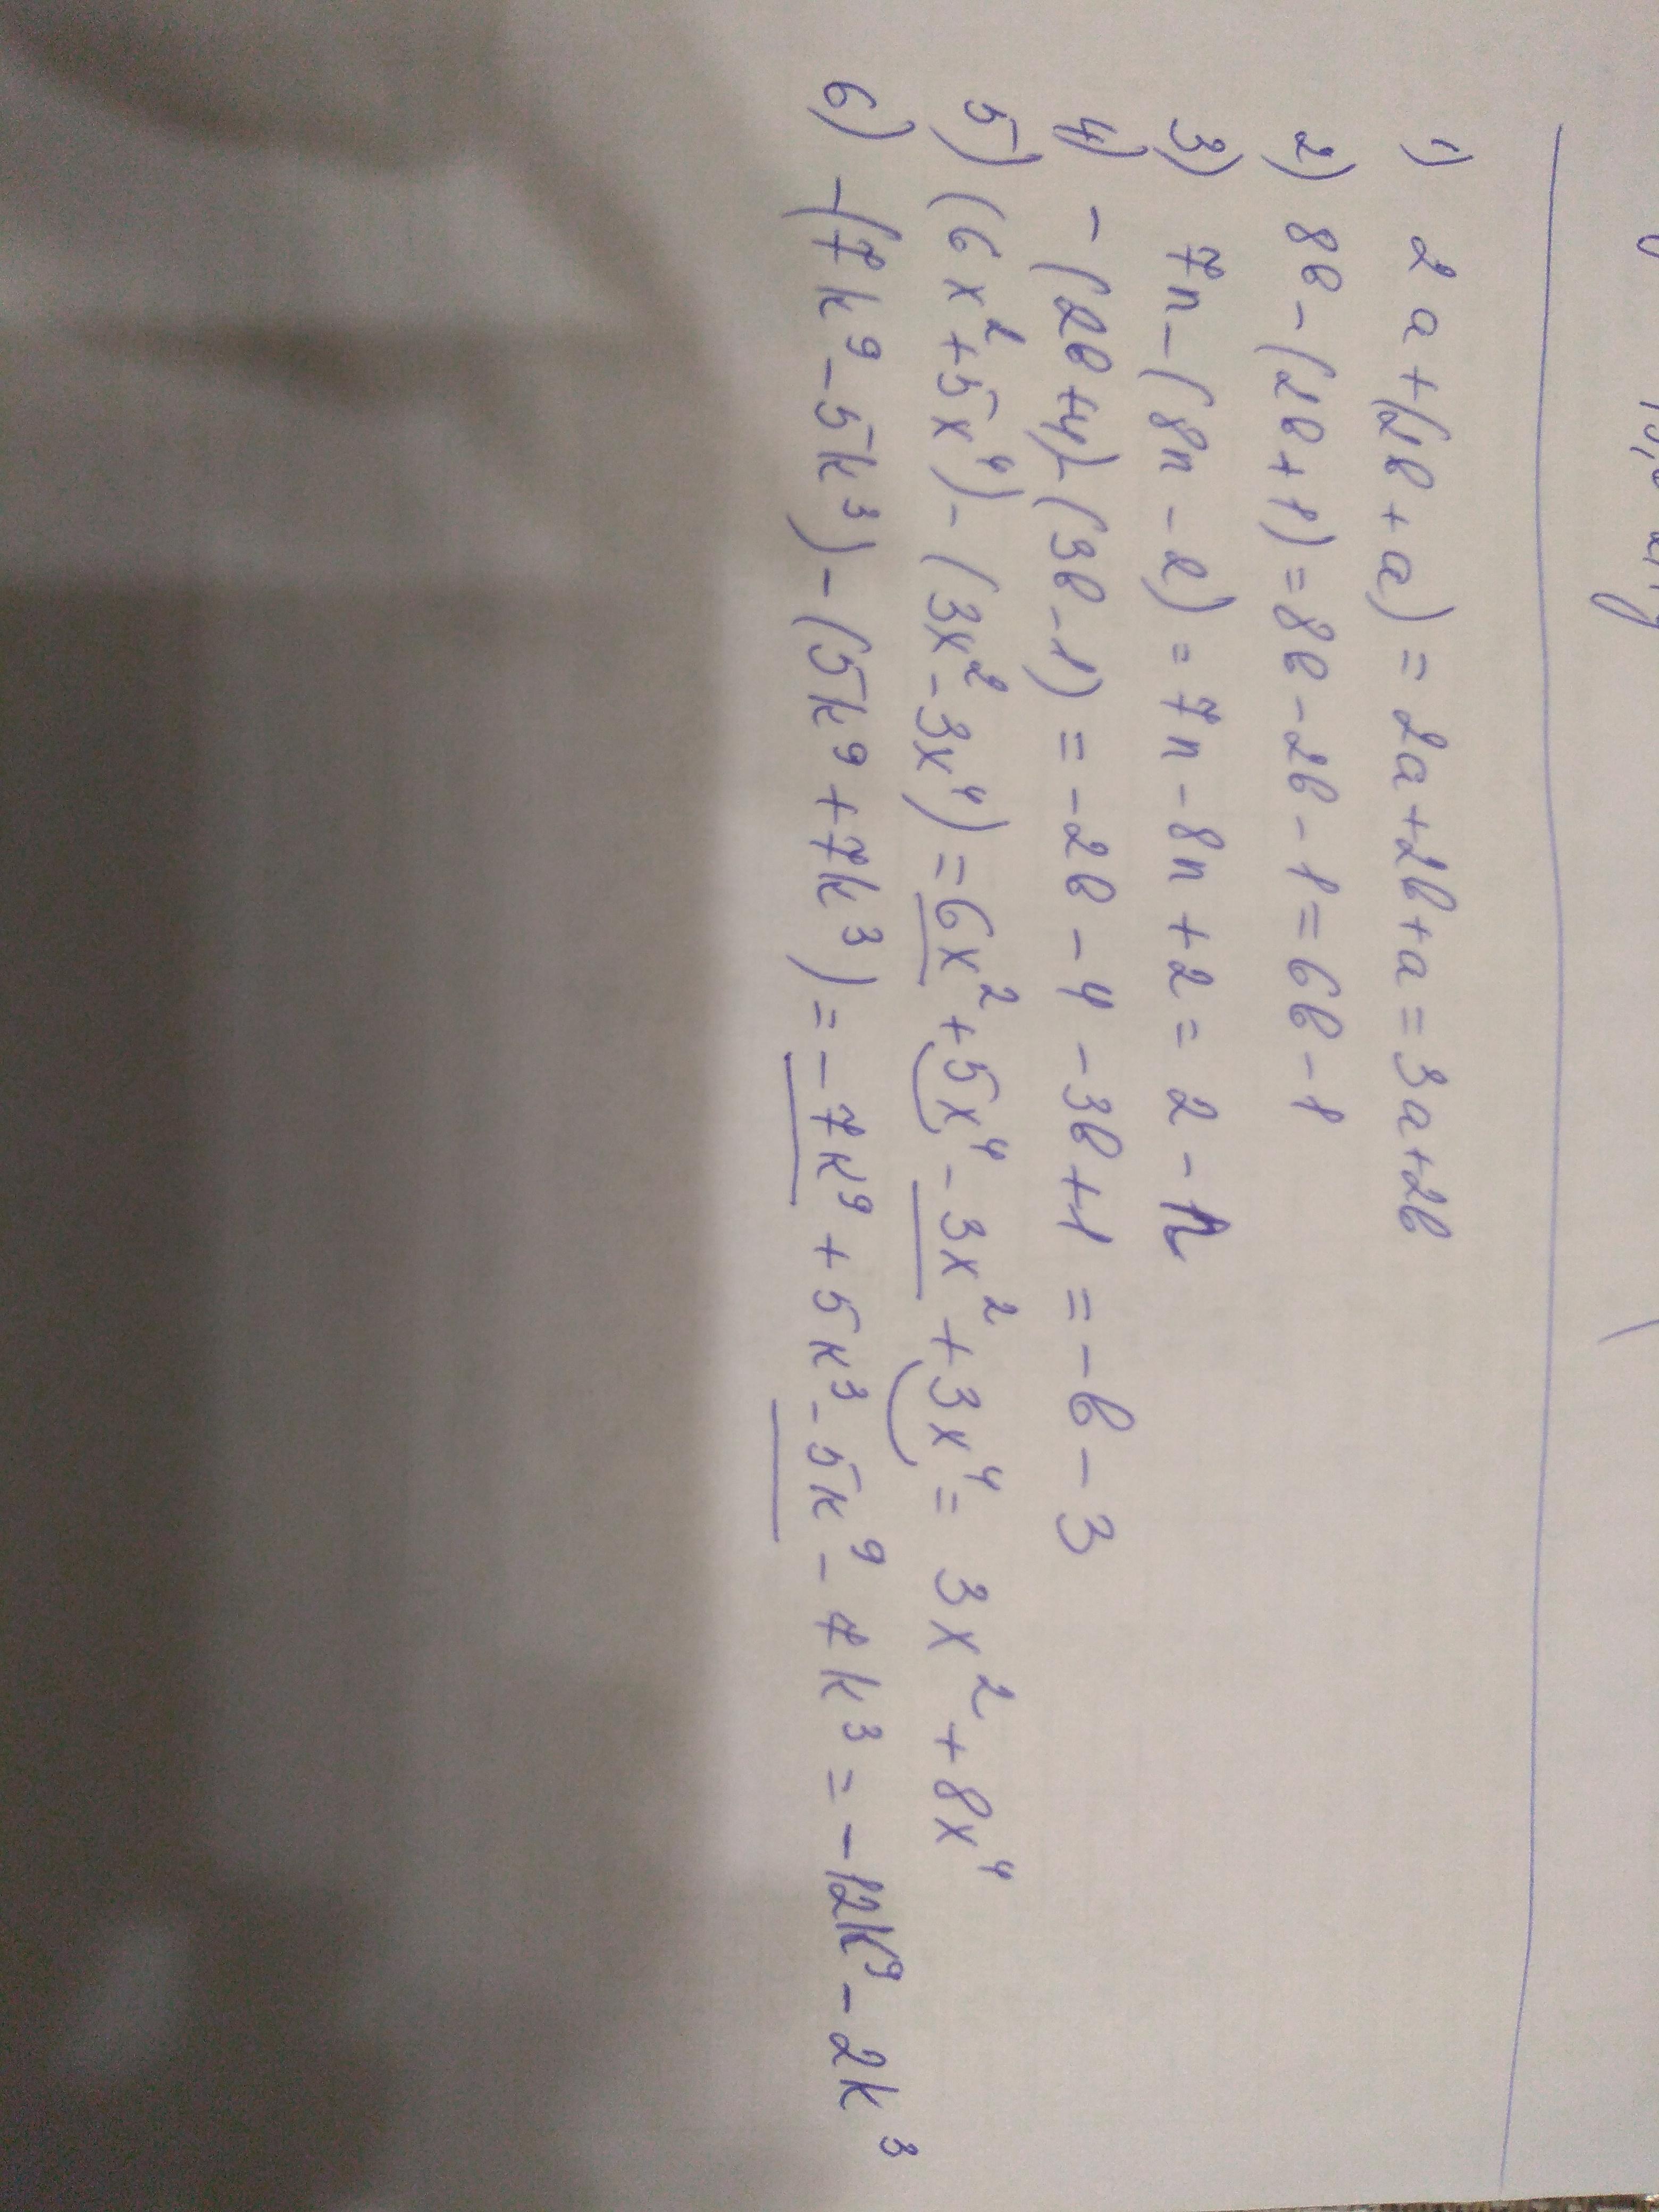 1) 2a+(2в+a)=2a+2в+a=3a+2в
2) 8в-(2в+1)=8в-2в-1=6в-1
3) 7n-(8n-2)=7n-8n+2=2-n
4) -(2в+4)-(3в-1)=-2в-4-3в+1=-в-3
5) (6x²+5x⁴)-(3x²-3x⁴)=6x²+5x⁴-3x²+3x⁴=3x²+8x⁴
6) -(7k⁹-5k³)-(5k⁹+7k³)=-7k⁹+5k³-5k⁹-7k³=-12k⁹-2k³